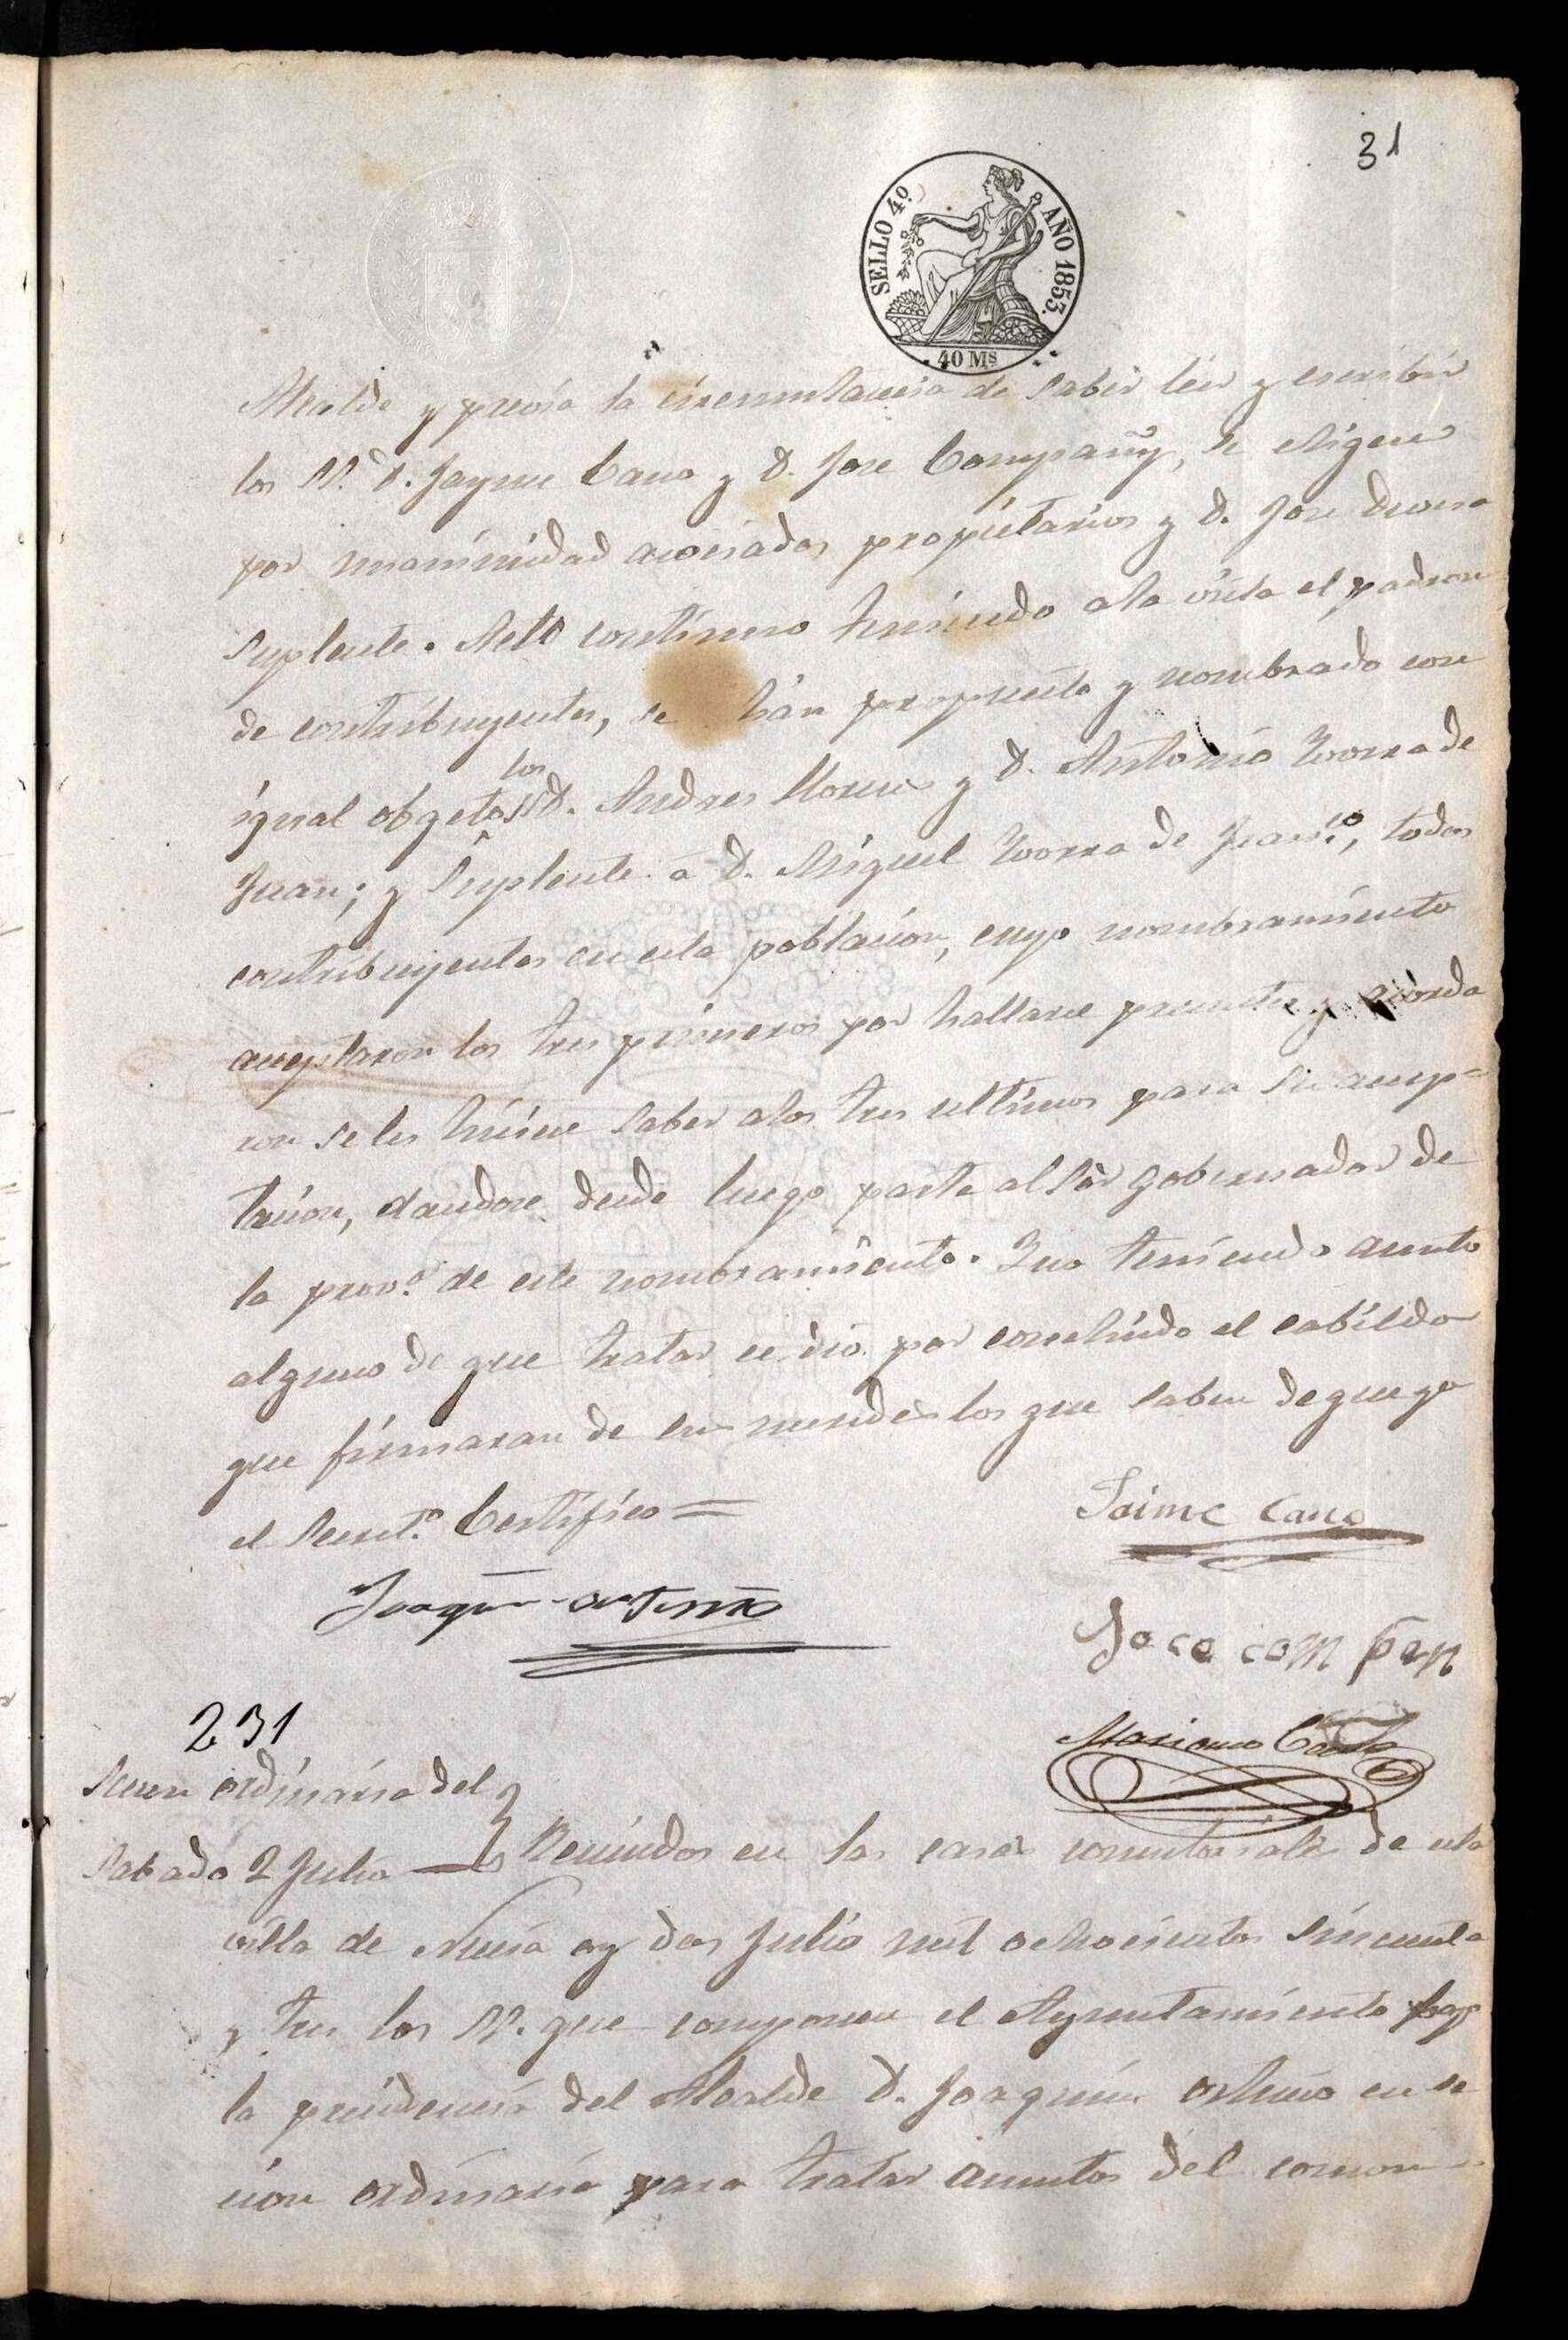 31
SELLO 4º. AÑO 1853.
40 Ms
Alcalde y previa la circunstancia de saber leer y escribir
los SS. D. Jayme Cano y D. Jose Compañy, se eligen
por unanimidad asociados propietarios y D. Jose
suplente. Acto continuo teniendo a la vista el padron
de contribuyentes, se hán propuesto y nombrado con
los
igual obgeto SS. D. Andres Llorens y D. Antonio Zvorra de
Juan; y suplente a D. Miguel Zvorra de Franco, todos
contribuyentes en esta poblacion, cuyo nombramiento
aceptaron los tres primeros por hallarse presentes y acorda
ron se les hiciese saber a los tres ultimos para su acep=
tacion, dandose desde luego parte al Sor Gobernador de
la prova. de este nombramiento. Y no teniendo asunto
alguno de que tratar se dió por concluido el cabildo
que firmaran de sus mercedes los que saben de que yo
el Secreto. Certifico=
Jaime Cano
Joaquin
Jose com pan
Mariano
231
Secion ordinaria del
Sabado 2 Julio
Reunidos en las casas consistoriales de esta
villa de Nucia oy dos Julio mil ochocientos sincuenta
y tres los SS. que componen el Ayuntamiento bajo
la presidencia del Alcalde D. Joaquin Ortuño en se
cion ordinaria para tratar asuntos del comun